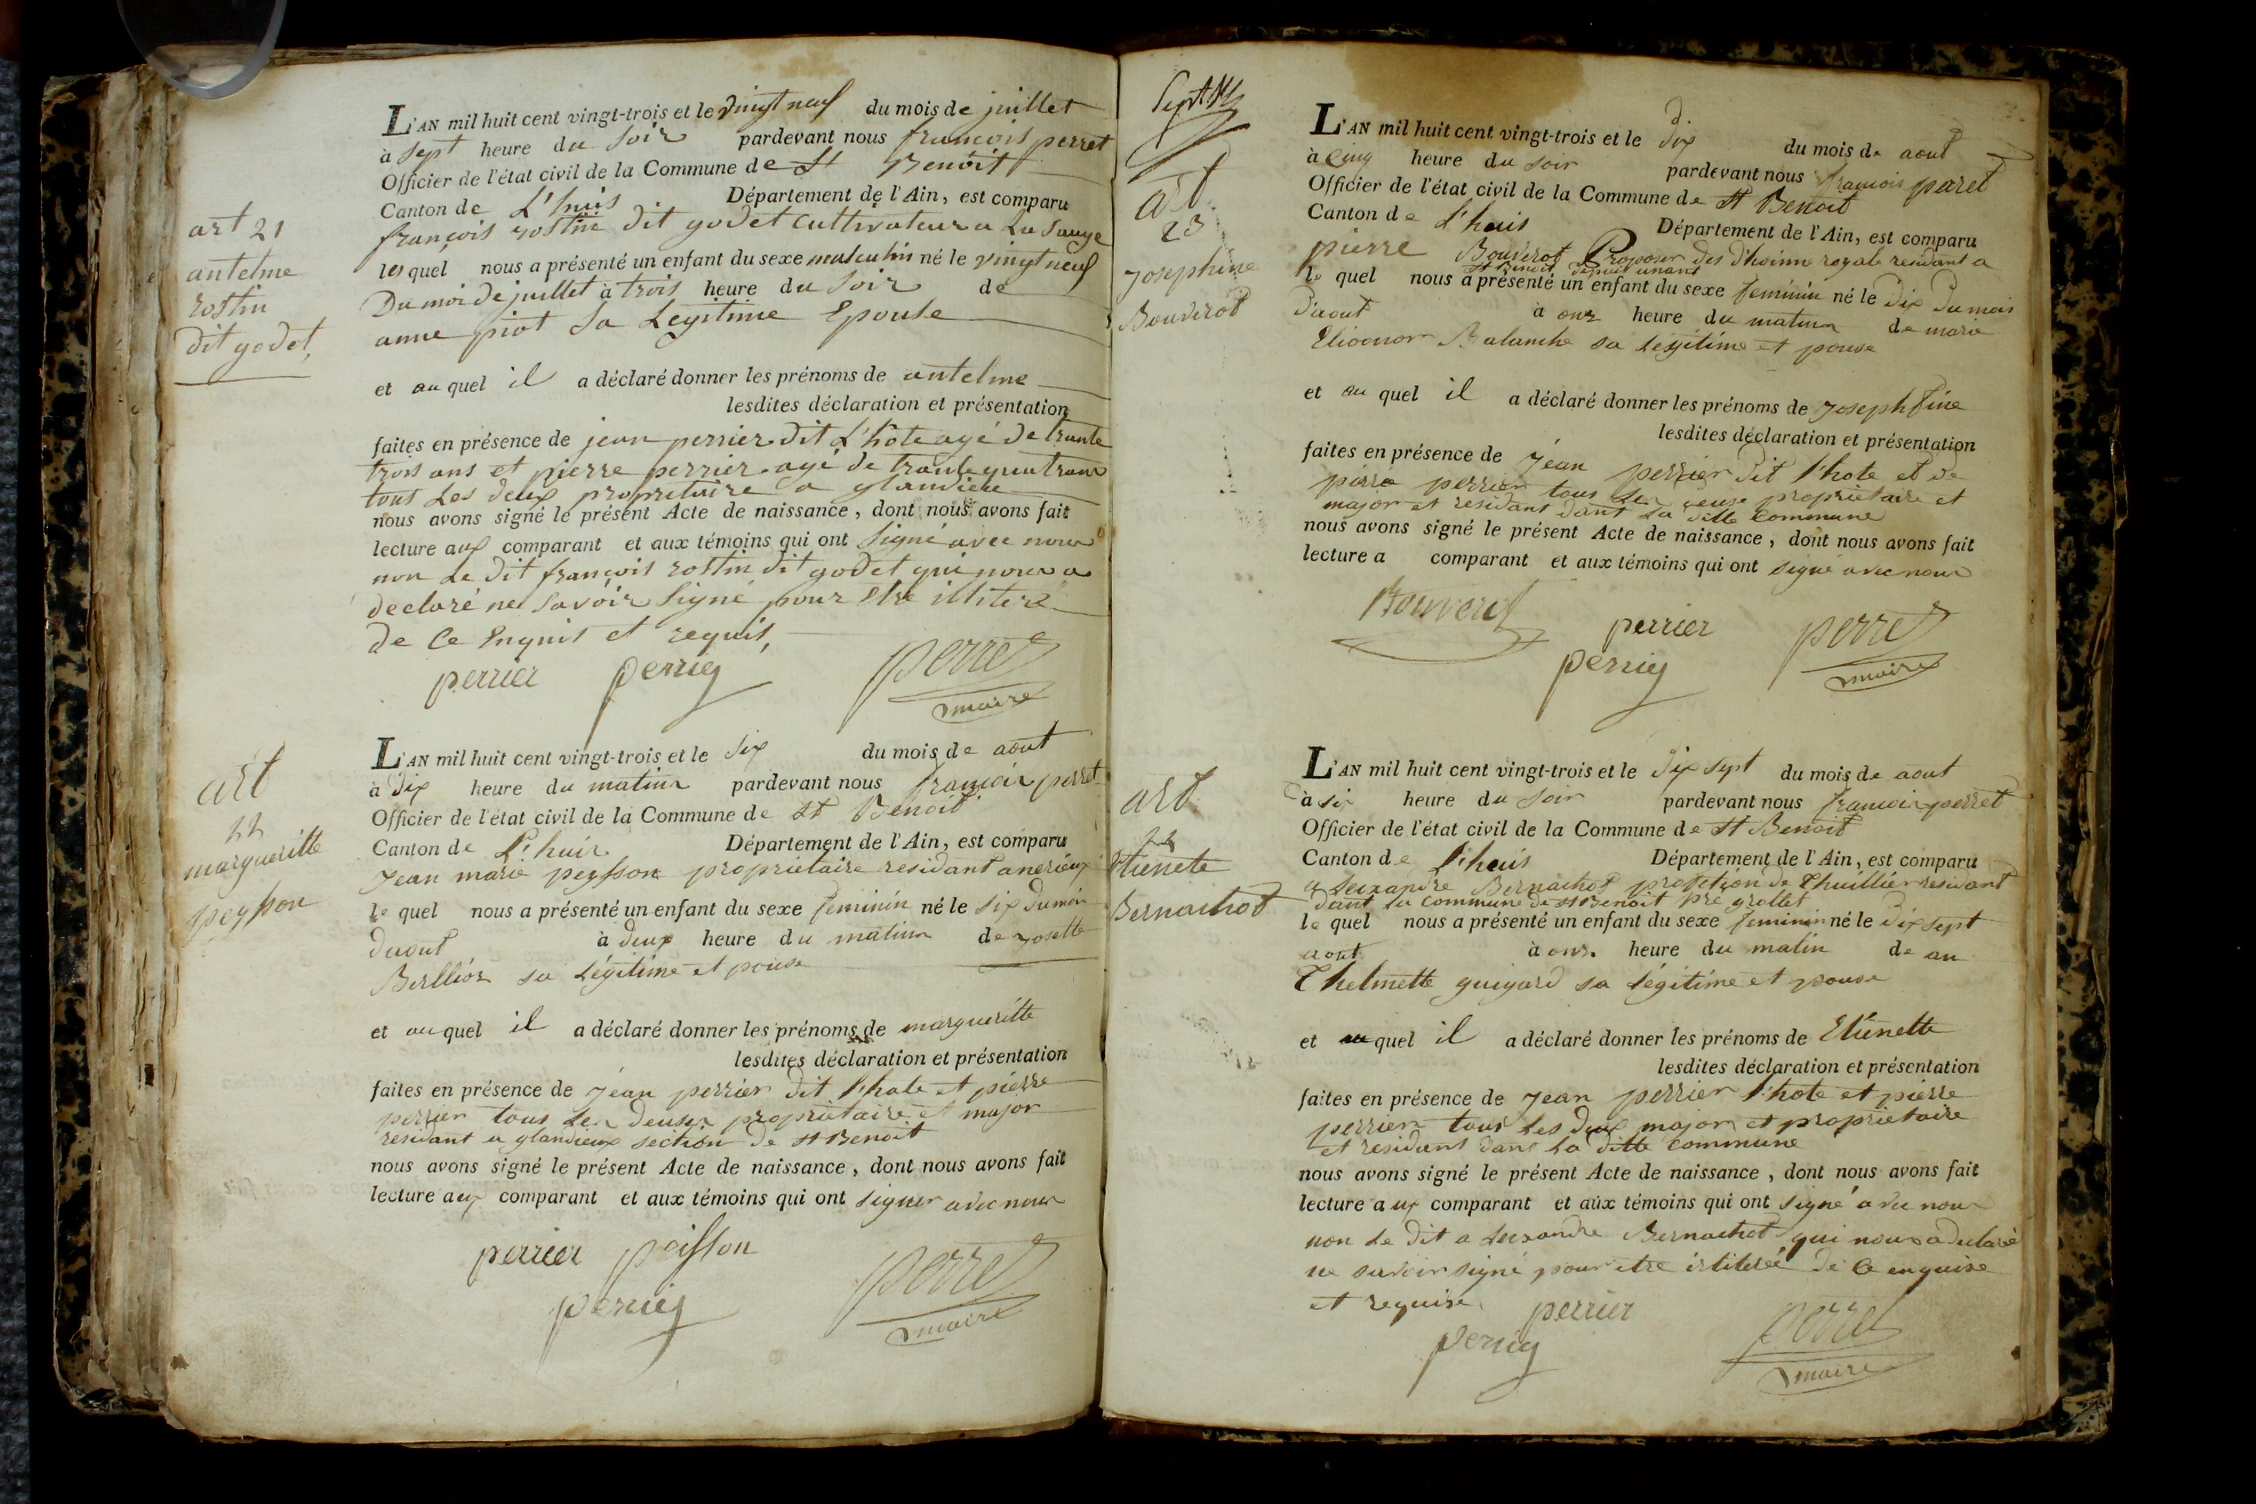 L'AN mil huit cent vingt-trois et le vingt neuf du mois de juillet
à sept heure du soir pardevant nous françois perret
Officier de l'état civil de la Commune de St Benoit
Canton de L'huis Département de l'Ain, est comparu
françois rostin dit godet cultivateur a La Sauge
lesquel nous a présenté un enfant du sexe masculin né le vingt neuf
Du moi de juillet à trois heure du soir de
anne piot Sa Legitime Epouse
et au quel il a déclaré donner les prénoms de antelme
lesdites déclaration et présentation
faites en présence de jean perrier dit L'hote agé de trante
trois ans et pierre perrier agé de trante quatr ans
tout Les deux propretaire a glandieu
nous avons signé le présent Acte de naissance, dont nous avons fait
lecture aux comparant et aux témoins qui ont signé avec nous
non Le dit françois rostin dit godet qui nous a
declaré ne savoir signé pour etre illiteré
de Ce Enquis et requis,
perrier perrier perret
maire
art 21
antelme
rostin
dit godet,
L'AN mil huit cent vingt-trois et le six du mois de aout
à dix heure du matin pardevant nous francois perret
Officier de l'état civil de la Commune de St Benoit
Canton de L'huis Département de l'Ain, est comparu
Jean marie peysson proprietaire residant a
le quel nous a présenté un enfant du sexe feminin né le six du mois
daout à deux heure du matin de josette
Berllior sa légitime et pouse
et au quel il a déclaré donner les prénoms de margueritte
lesdites déclaration et présentation
faites en présence de jean perrier dit l'hote et pierre
perrier tous les deuser proprietaire et major
residant a glandieux section de St Benoit
nous avons signé le présent Acte de naissance, dont nous avons fait
lecture aux comparant et aux témoins qui ont signer avec nous
perrier peisson
perrier perret
maire
art
22
margueritte
peysson
L'AN mil huit cent vingt-trois et le dix du mois de aout
à cinq heure du soir pardevant nous francois paret
Officier de l'état civil de la Commune de St Benoit
Canton de L'huis Département de l'Ain, est comparu
pierre Bouverot Proposer des d'hoinne royale residant a
St Benoit depuit unant
le quel nous a présenté un enfant du sexe feminin né le dix du mois
d'aout à onz heure du matin de marie
Elioonor Balanche sa legitime et pouse
et au quel il a déclaré donner les prénoms de josephfine
lesdites déclaration et présentation
faites en présence de jean perrier dit l'hote et de
pierre perrier tous les deuse proprietaire et
major et residant dans la ditte commune
nous avons signé le présent Acte de naissance, dont nous avons fait
lecture a comparant et aux témoins qui ont signé avec nous
Bouverot perrier perret
perrier maire
Sept
art
23
josephine
Bouverot
L'AN mil huit cent vingt-trois et le dix sept du mois de aout
à six heure du soir pardevant nous francois perret
Officier de l'état civil de la Commune de St Benoit
Canton de l'huis Département de l'Ain, est comparu
a lexandre Bernachot profetion de Thuillier residant
dant la commune de St Benoit pre grollet
le quel nous a présenté un enfant du sexe feminin né le dix sept
aout à onz. heure du matin de an
Thelmette guigard sa légitime et pouse
et au quel il a déclaré donner les prénoms de Etiénette
lesdites déclaration et présentation
faites en présence de jean perrier l'hote et pierre
perrier tous les deux major et proprietaire
et residant dans la ditte commune
nous avons signé le présent Acte de naissance, dont nous avons fait
lecture aux comparant et aux témoins qui ont signé avec nous
non le dit a lexandre Bernachot qui nous a declaré
ne savoir signé pour etre ilitéré de ce enquise
et requise perrier
perrier perret
maire
art
24
Etienete
Bernachot